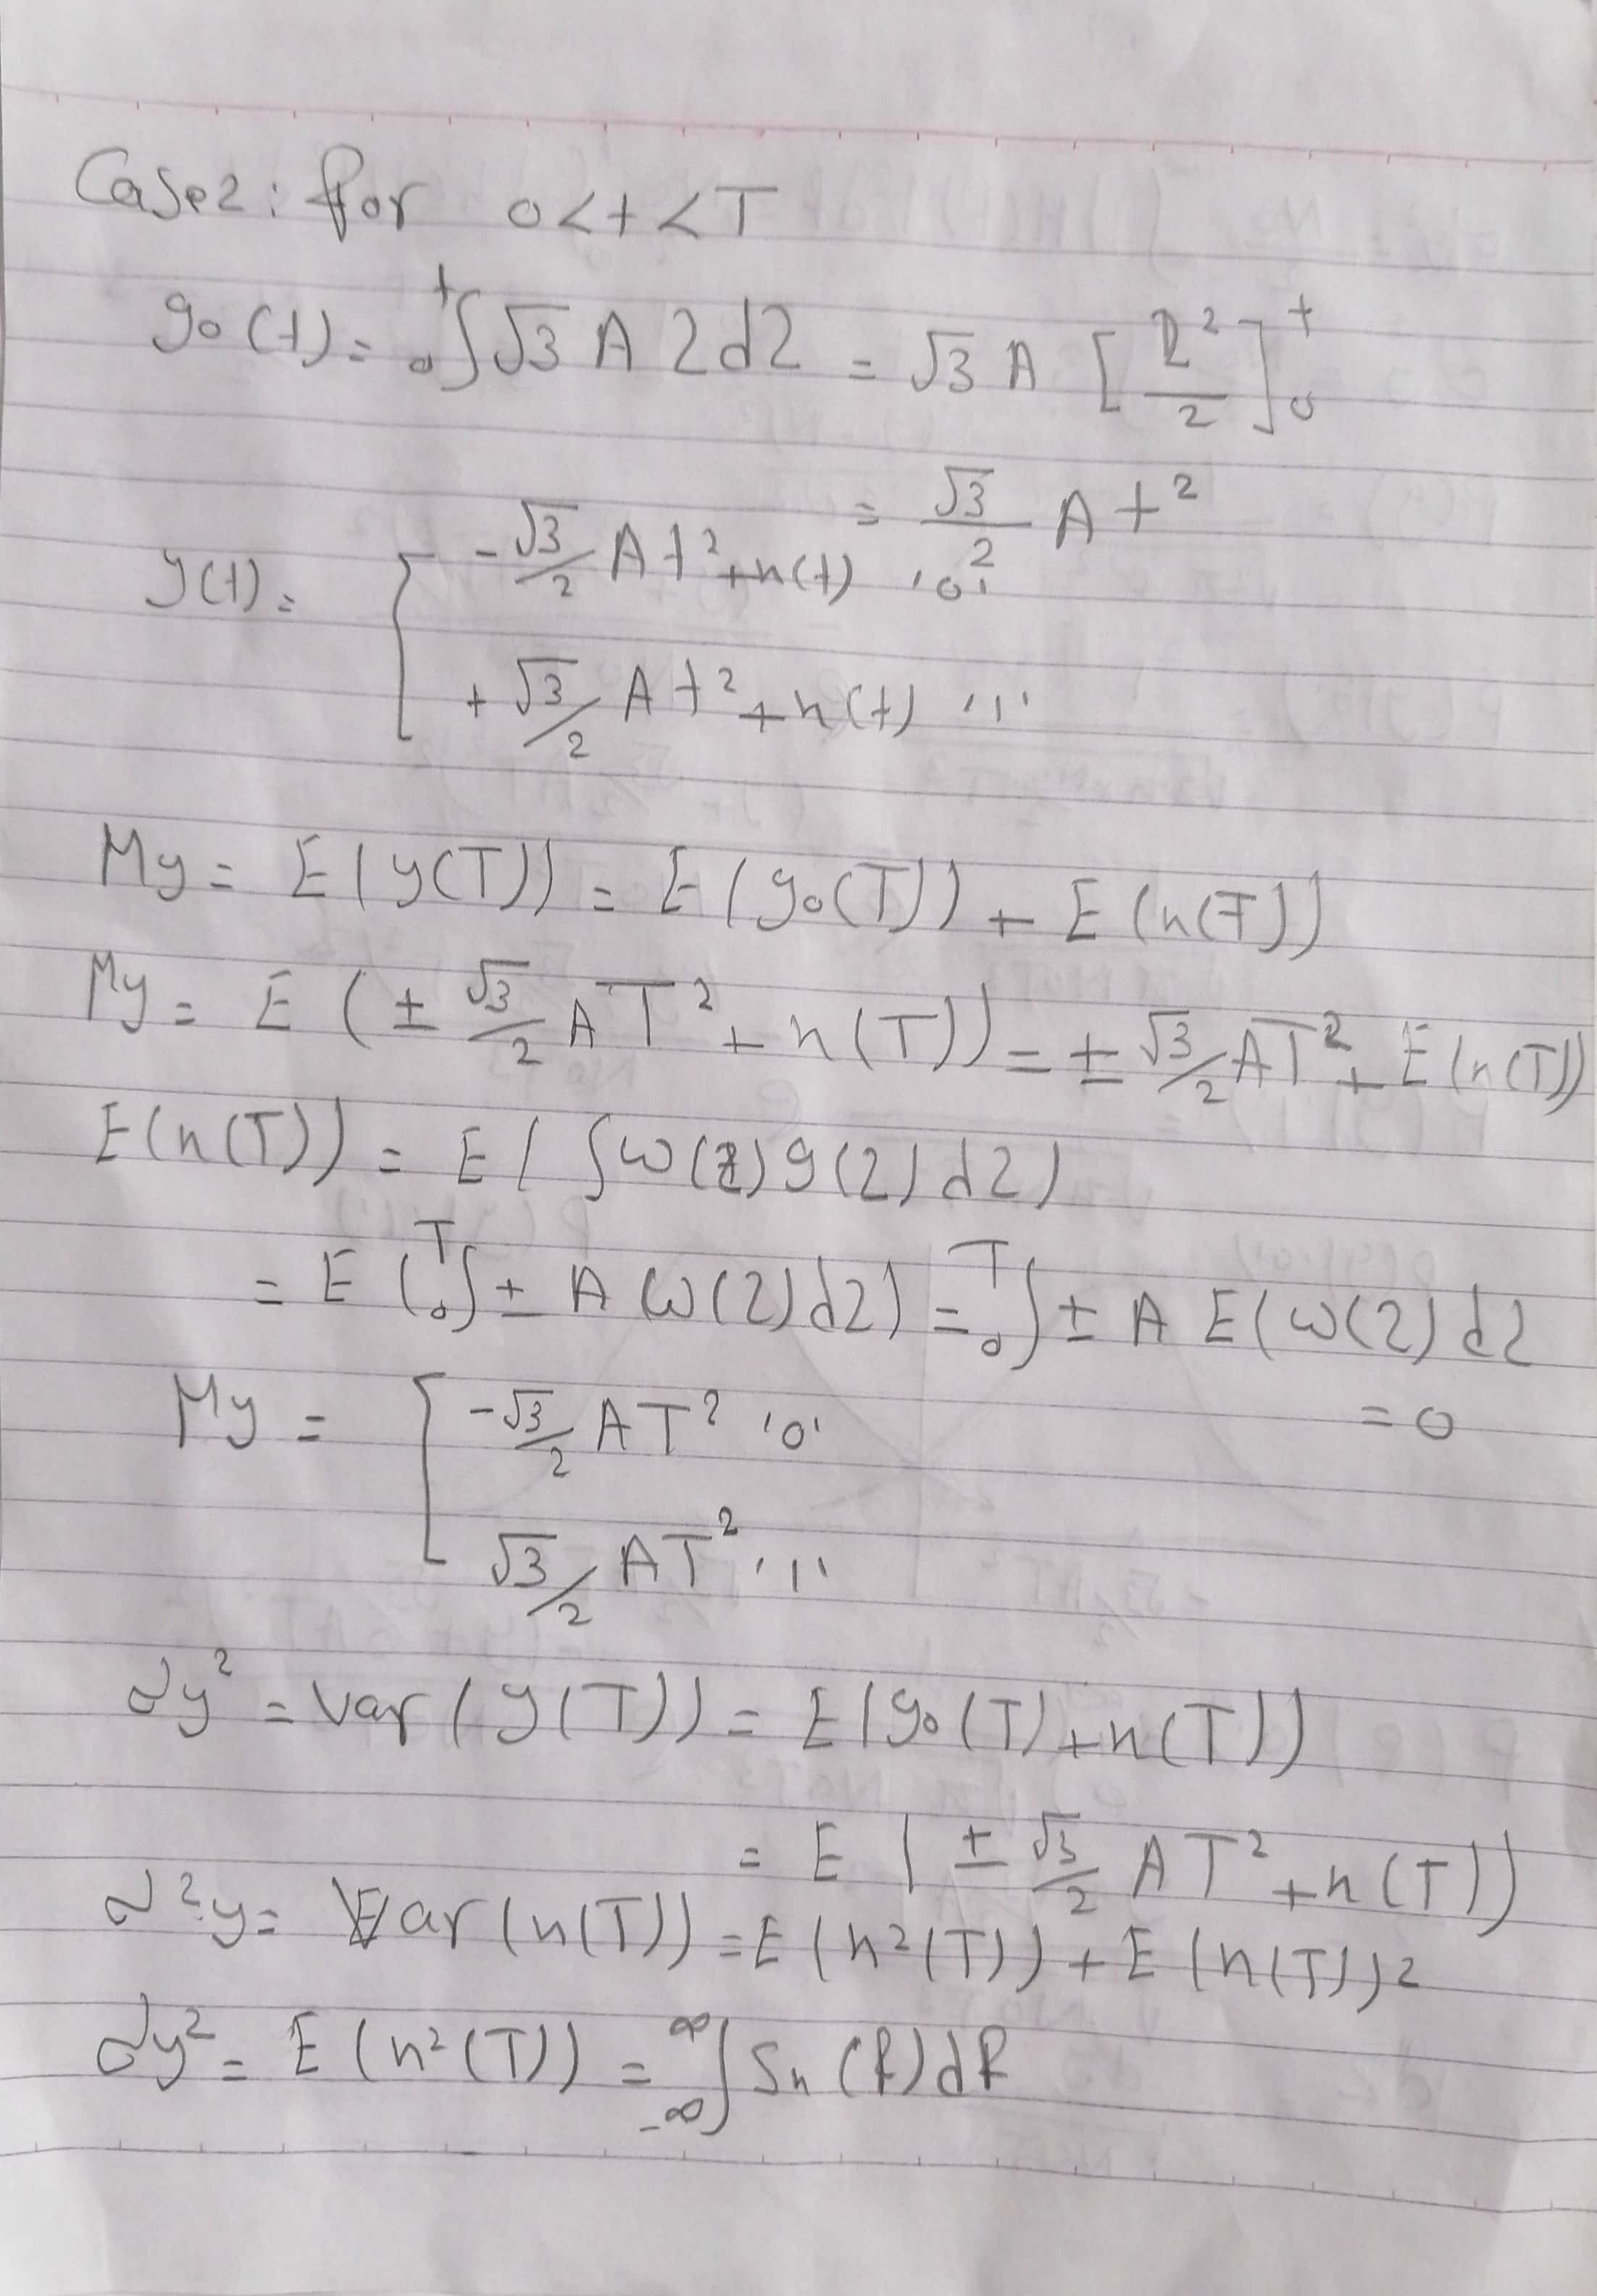 Case2: for 0<t<T
go(t) = 0∫t √3 A 2 d2 = √3 A [2²/2]0t
= √3/2 A t²
y(t) = [ -√3/2 At²+n(t) '0'
+√3/2 At²+n(t) '1'
My = E(y(T)) = E(go(T)) + E(n(T))
My = E (± √3/2 AT² + n(T)) = ± √3/2 AT² + E(n(T))
E(n(T)) = E( ∫w(2)g(2)d2)
= E (0∫T ± A w(2)d2) = 0∫T ± A E(w(2)d2
= 0
My = [ -√3/2 AT² '0'
√3/2 AT² '1'
σy² = Var(y(T)) = E(go(T)+n(T))
= E ( ± √3/2 AT²+n(T))
σ²y = Var(n(T)) = E(n²(T)) + E(n(T))2
σy² = E(n²(T)) = -∞∫∞ Sn(f)df